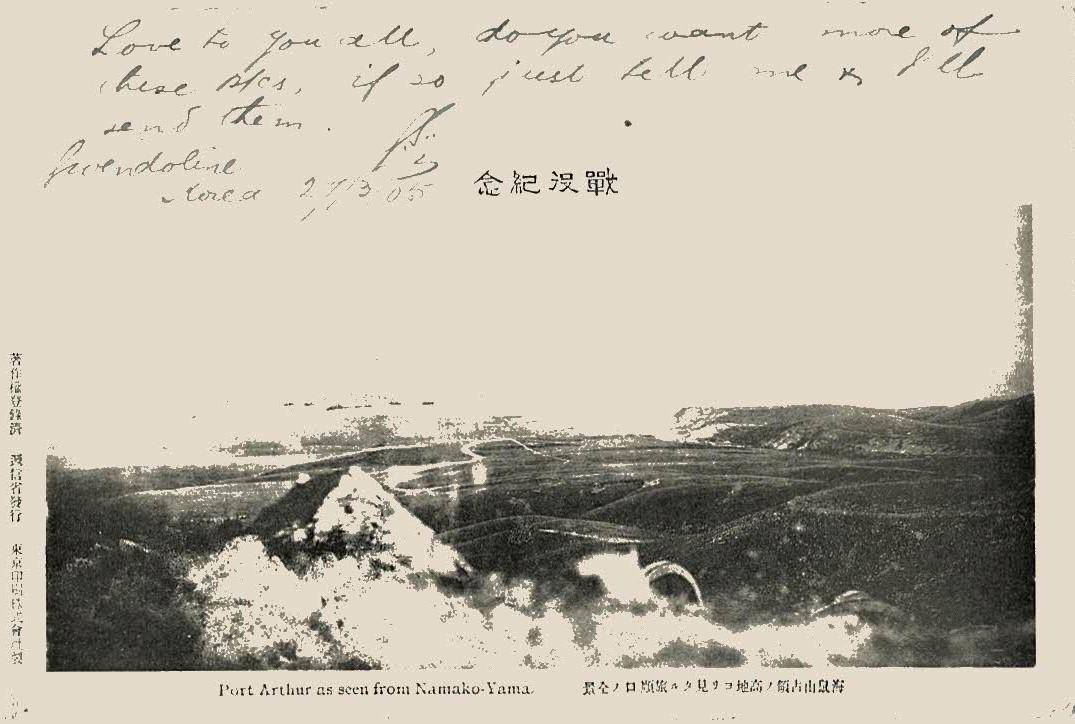 Love to you all, do you want more of
these pcs, if so just tell me & I'll
send them.
Gwendoline
Korea 27/3/05
念紀役戰
著作権登録済 逓信省発行 東京印刷株式會社製
Port Arthur as seen from Namako-Yama.
海鼠山占領ノ高地ヨリ見タル旅順口ノ全景